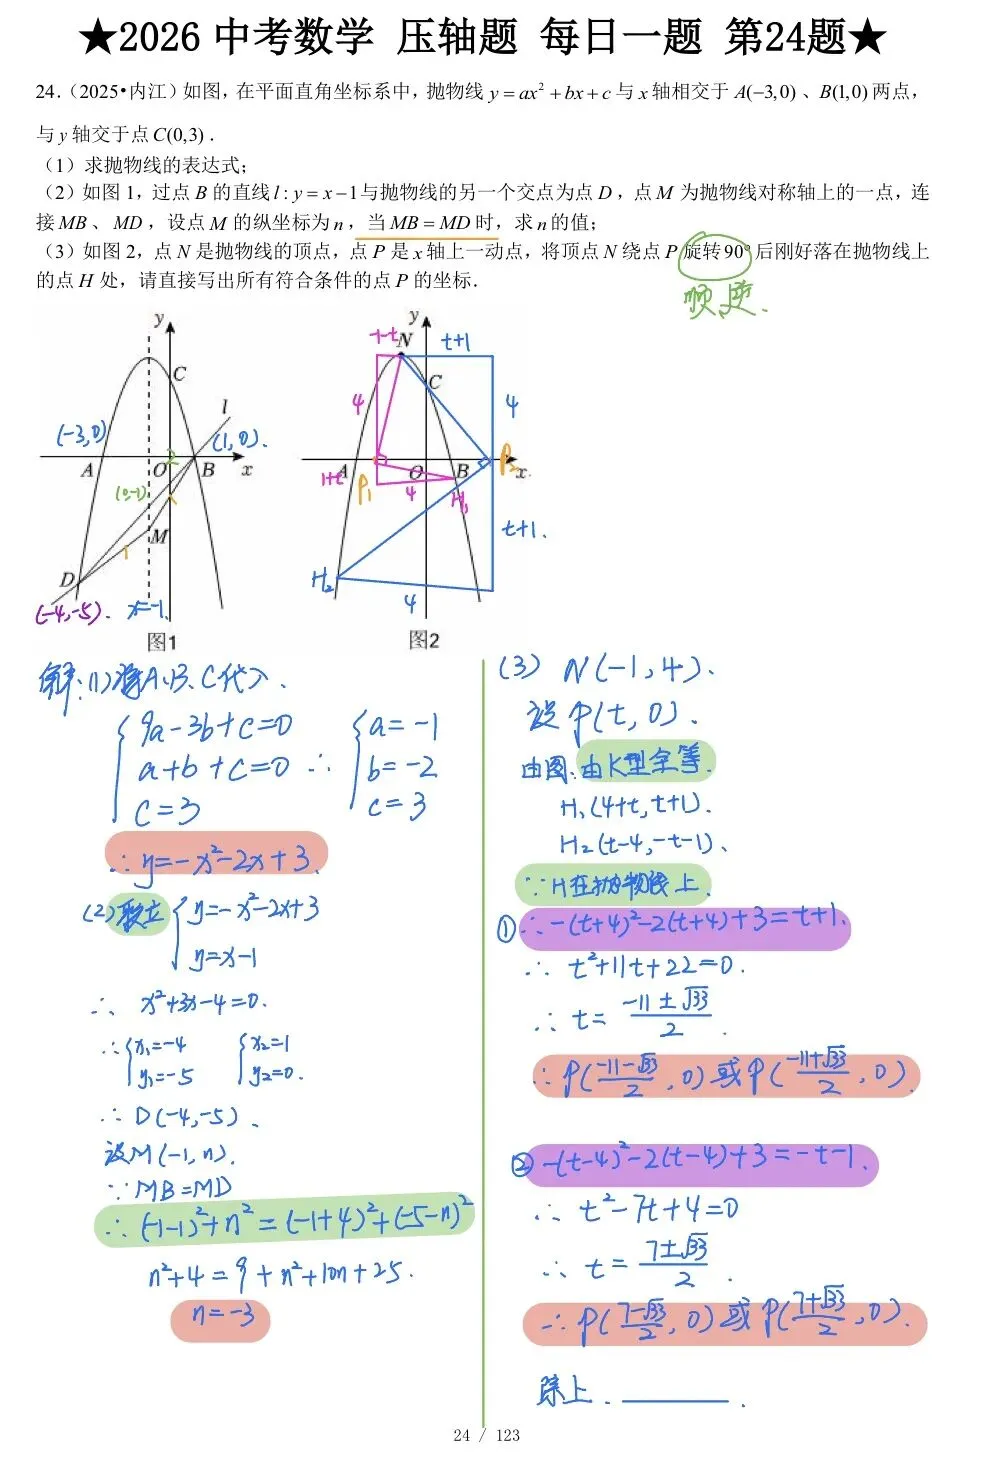 ★2026 中考数学 压轴题 每日一题 第24题★
24.（2025•内江）如图，在平面直角坐标系中，抛物线 y = ax² + bx + c 与 x 轴相交于 A(−3,0) 、B(1,0) 两点，
与 y 轴交于点 C(0,3) .
（1）求抛物线的表达式；
（2）如图 1，过点 B 的直线 l : y = x − 1 与抛物线的另一个交点为点 D ，点 M 为抛物线对称轴上的一点，连
接 MB 、 MD ，设点 M 的纵坐标为 n ，当 MB = MD 时，求 n 的值；
（3）如图 2，点 N 是抛物线的顶点，点 P 是 x 轴上一动点，将顶点 N 绕点 P 旋转 90° 后刚好落在抛物线上
的点 H 处，请直接写出所有符合条件的点 P 的坐标.
顺、逆.
y
C
l
(-3,0)
(1,0).
A
O
2
B
x
(0,-1)
M
1
D
(-4,-5).
x=-1.
图1
y
-1-t
N
t+1
C
4
4
A
O
B
P₂
x
1+t
P₁
4
H₁
t+1.
H₂
4
图2
解：(1)将A、B、C代入.
9a-3b+c=0
a+b+c=0
c=3
∴
a=-1
b=-2
c=3
∴ y=-x²-2x+3.
(2) 联立
y=-x²-2x+3
y=x-1
∴ x²+3x-4=0.
∴ x₁=-4 x₂=1
y₁=-5 y₂=0.
∴ D(-4,-5).
设M(-1,n).
∵ MB=MD
∴ (-1-1)²+n²=(-1+4)²+(-5-n)²
n²+4=9+n²+10n+25.
n=-3
(3) N(-1,4).
设P(t,0).
由图、由K型全等.
H₁(4+t,t+1).
H₂(t-4,-t-1)、
∵H在抛物线上.
① ∴ -(t+4)²-2(t+4)+3=t+1.
∴ t²+11t+22=0.
∴ t= (-11±√33)/2 .
∴ P((-11-√33)/2,0)或P((-11+√33)/2,0).
② -(t-4)²-2(t-4)+3=-t-1.
∴ t²-7t+4=0
∴ t= (7±√33)/2 .
∴ P((7-√33)/2,0)或P((7+√33)/2,0).
综上.
24 / 123